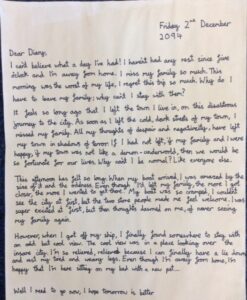 Friday 2nd December
2094
Dear Diary,
I can't believe what a day I've had! I haven't had any rest since five
o'clock and I'm away from home. I miss my family so much. This
morning was the worst of my life, I regret this trip so much. Why do I
have to leave my family; why can't I stay with them?
It feels so long ago that I left the town I live in, on this disastrous
journey to the city. As soon as I left the cold, dark streets of my town, I
missed my family. All my thoughts of despair and negativity, have left
my town in shadows of terror! If I had not left, my family and I were
happy, if my town was not like a demon-underworld, then we would be
so fortunate for our lives. Why can't I be normal? Like everyone else.
This afternoon has felt so long. When my boat arrived, I was amazed by the
size of it and the address. Even though I'd left my family, the more I got
closer, the more I wanted to get there. My boat was so cramped, I couldn't
see the city at first, but the two stone people made me feel welcome. I was
super excited at first, but then thoughts dawned on me, of never seeing
my family again.
However, when I got off my ship, I finally found somewhere to stay with
an odd but cool view. The cool view was in a place looking over the
insane city. I'm so relieved, relieved because I can finally have a lie down
and rest my tired and weary legs. Even though I'm away from home, I'm
happy that I'm here sitting on my bed with a new pet...
Well I need to go now, I hope tomorrow is better